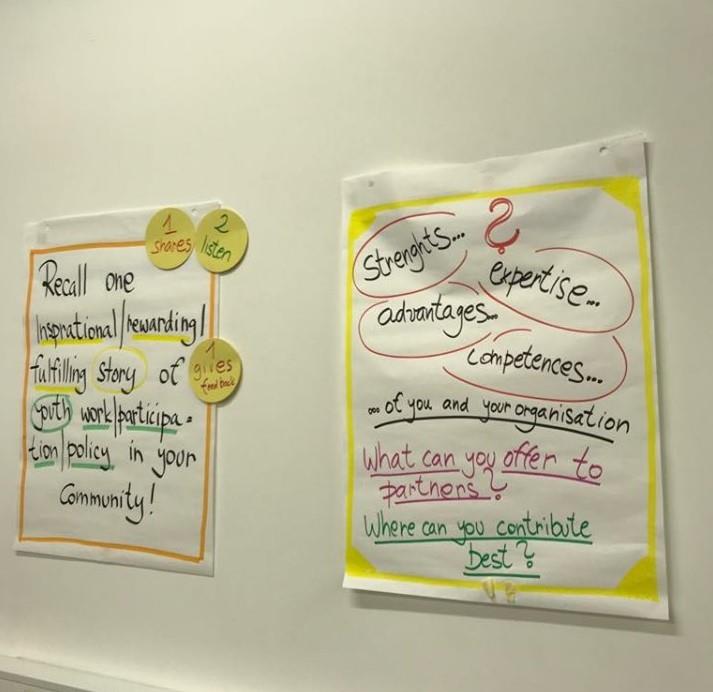 1
shares
2
listen
Recall one
Insprational/rewarding/
fulfilling story of
1
gives
feedback
youth work/participa-
tion/policy in your
Community!
?
Strenghts...
expertise...
advantages...
competences...
... of you and your organisation
What can you offer to
partners?
Where can you contribute
best?